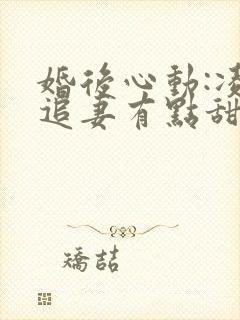 婚後心動:凌
追妻有點甜
矯喆